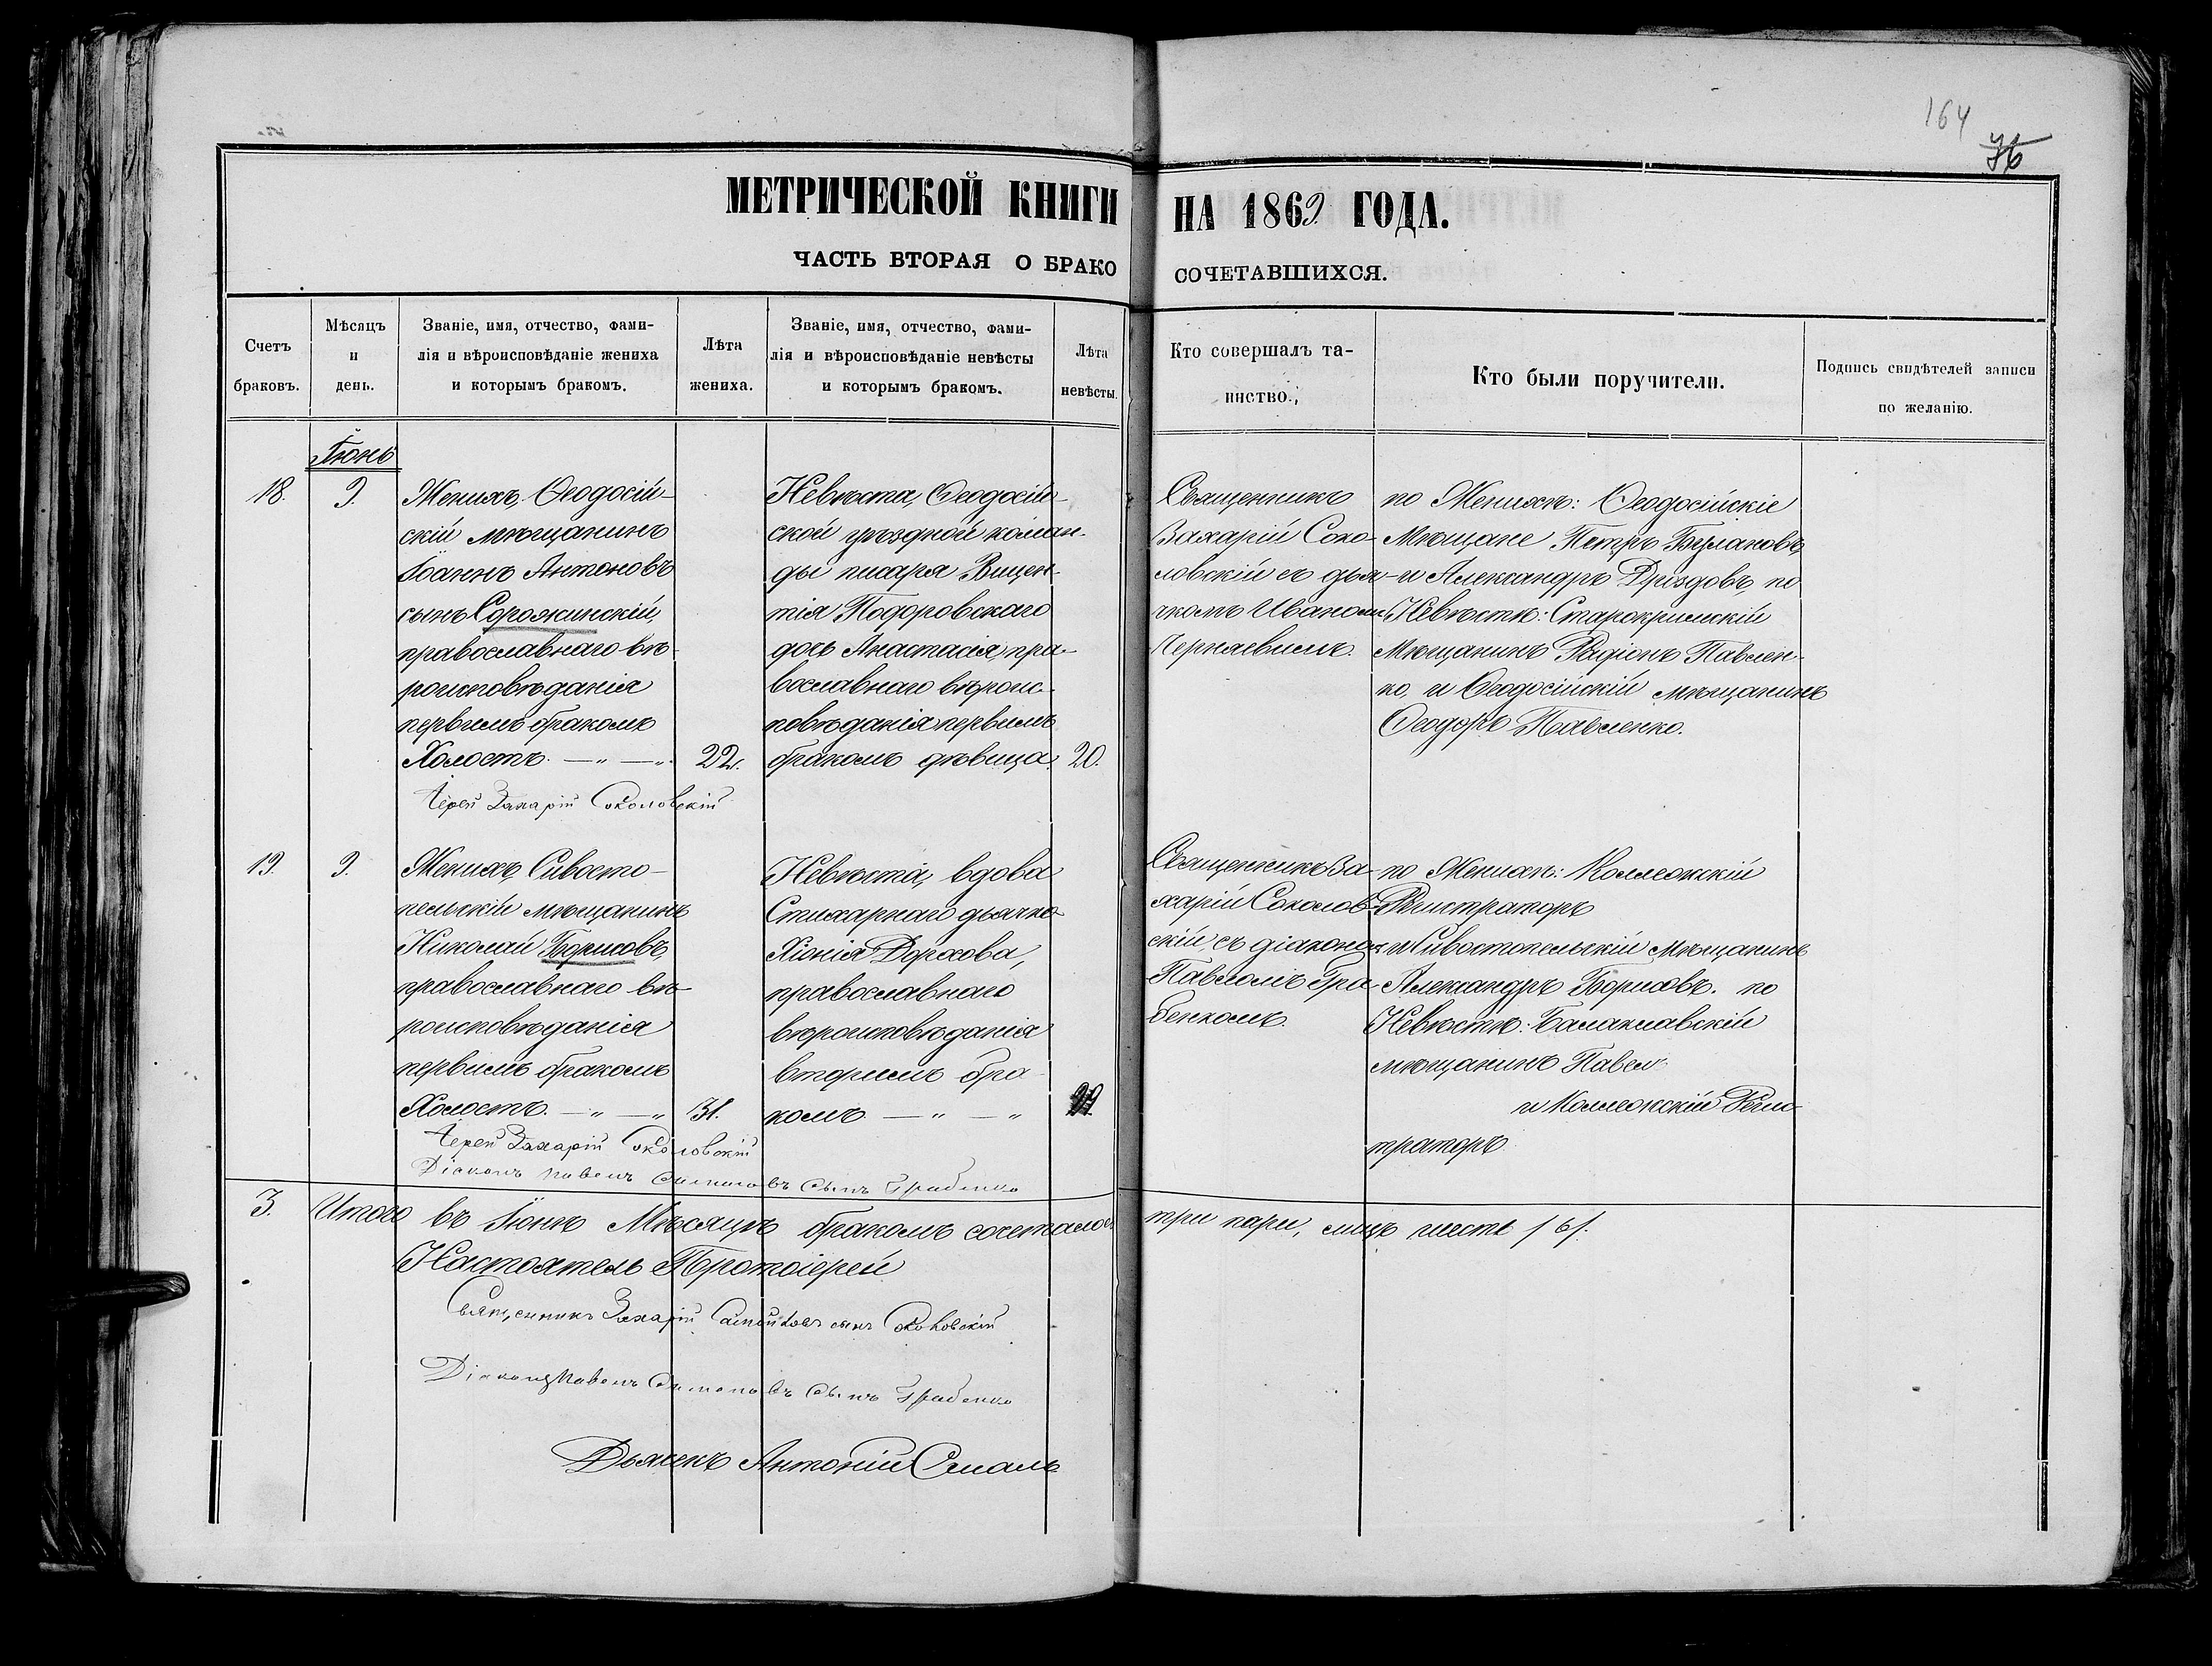 164
76
МЕТРИЧЕСКОЙ КНИГИ НА 1869 ГОДА.
ЧАСТЬ ВТОРАЯ О БРАКОСОЧЕТАВШИХСЯ.
Счетъ браковъ.
Мѣсяцъ и день.
Званіе, имя, отчество, фами-
лія и вѣроисповѣданіе жениха
и которымъ бракомъ.
Лѣта жениха.
Званіе, имя, отчество, фами-
лія и вѣроисповѣданіе невѣсты
и которымъ бракомъ.
Лѣта невѣсты.
Кто совершалъ та-
инство.
Кто были поручители.
Подпись свидѣтелей записи
по желанію.
Іюнь
18.
9.
Женихъ, Ѳеодосій-
скій мѣщанинъ
Іоаннъ Антоновъ
сынъ Сорожинскій,
православнаго вѣ-
роисповѣданія
первымъ бракомъ
Холостъ. — „ — „
22.
Невѣста, Ѳеодосій-
ской уѣздной коман-
ды писаря Викен-
тія Подоровскаго
дочь Анастасія, пра-
вославнаго вѣроис-
повѣданія первымъ
бракомъ дѣвица.
20.
Священникъ
Захарій Соко-
ловскій съ дья-
чкомъ Иваномъ
Черняевымъ.
по Женихѣ: Ѳеодосійскіе
Мѣщане Петръ Булановъ
и Александръ Дроздовъ, по
Невѣстѣ: Старокрымскій
Мѣщанинъ Радіонъ Павлен-
ко, и Ѳеодосійскій мѣщанинъ
Ѳеодоръ Павленко.
Іерей Захарій Соколовскій
19.
9.
Женихъ, Сивасто-
пельскій мѣщанинъ
Николай Борисовъ,
православнаго вѣ-
роисповѣданія
первымъ бракомъ
Холостъ. — „ — „
31.
Невѣста, вдова
Стихарнаго дьячка
Хіонія Дорхова,
православнаго
вѣроисповѣданія
вторымъ бра-
комъ — „ — „
Священникъ За-
харій Соколов-
скій, съ діакономъ
Павломъ Гра-
бенкомъ.
по Женихѣ: Коллежскій
Регистраторъ
и Сивастопельскій мѣщанинъ
Александръ Борисовъ. по
Невѣстѣ: Балаклавскій
мѣщанинъ Павелъ
и Коллежскій Реги-
страторъ
Іерей Захарій Соколовскій
Діаконъ Павелъ Симеоновъ сынъ Грабенко
3.
Итого въ Іюнѣ Мѣсяцѣ бракомъ сочеталось три пары, лицъ шесть /6/.
Настоятель Протоіерей
Священникъ Захарій сынъ Соколовскій
Діаконъ Павелъ Симеоновъ сынъ Грабенко
Дьячекъ Антоній Смаль